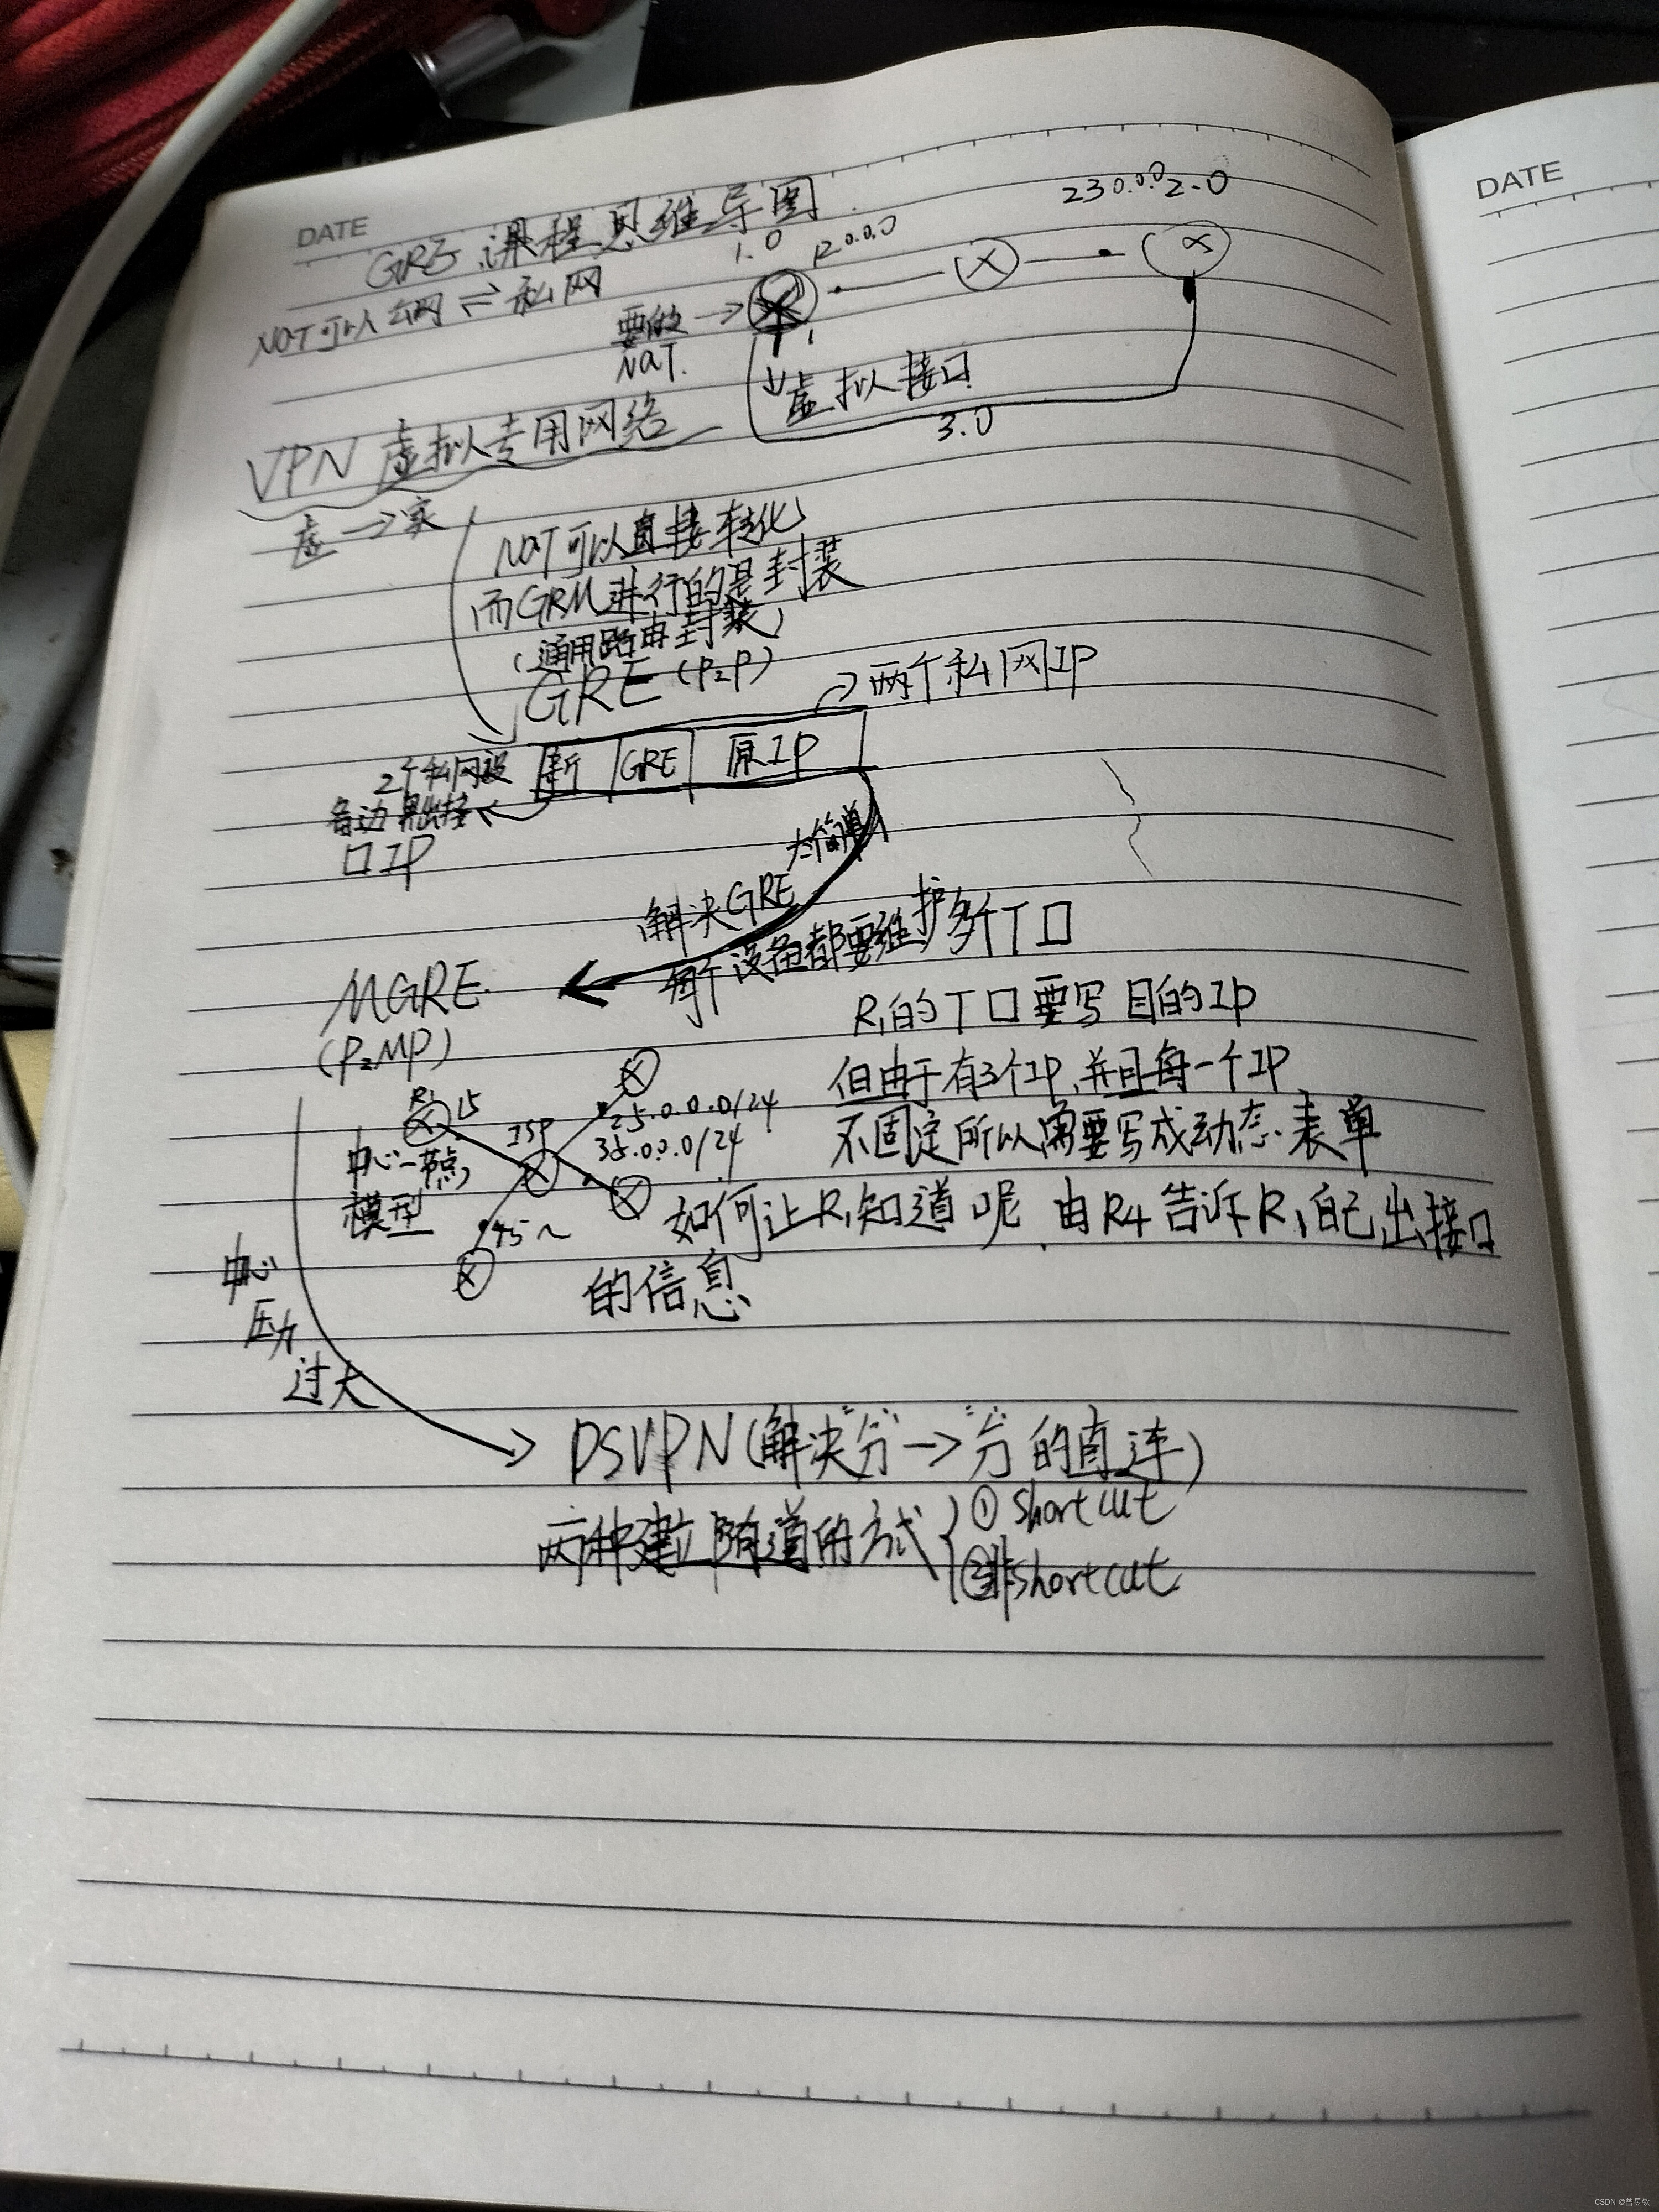 DATE
DATE
GRE 课程思维导图
1.0
12.0.0.0
230.0.0 2.0
NAT可以公网⇌私网
要的→
NAT.
虚拟接口
3.0
VPN 虚拟专用网络
虚→家
NAT可以直接转化
而GRM进行的是封装
(通用路由封装)
GRE (P2P)
→两个私网IP
新 GRE 原IP
2个私网设
备边界出接
口IP
解决GRE
每个设备都要维护多个T口
MGRE
(P2MP)
R1的T口要写目的IP
但由于有3个IP,并且每一个IP
不固定所以需要写成动态表单
R1 15
ISP
25.0.0.0/24
35.0.0.0/24
中心-节点
模型
45~
如何让R1知道呢 由R4告诉R1自己出接口
的信息
中心
压力
过大
DSVPN(解决"分"→"分"的直连)
两种建立隧道的方式
①shortcut
②非shortcut
CSDN @曾昱钦